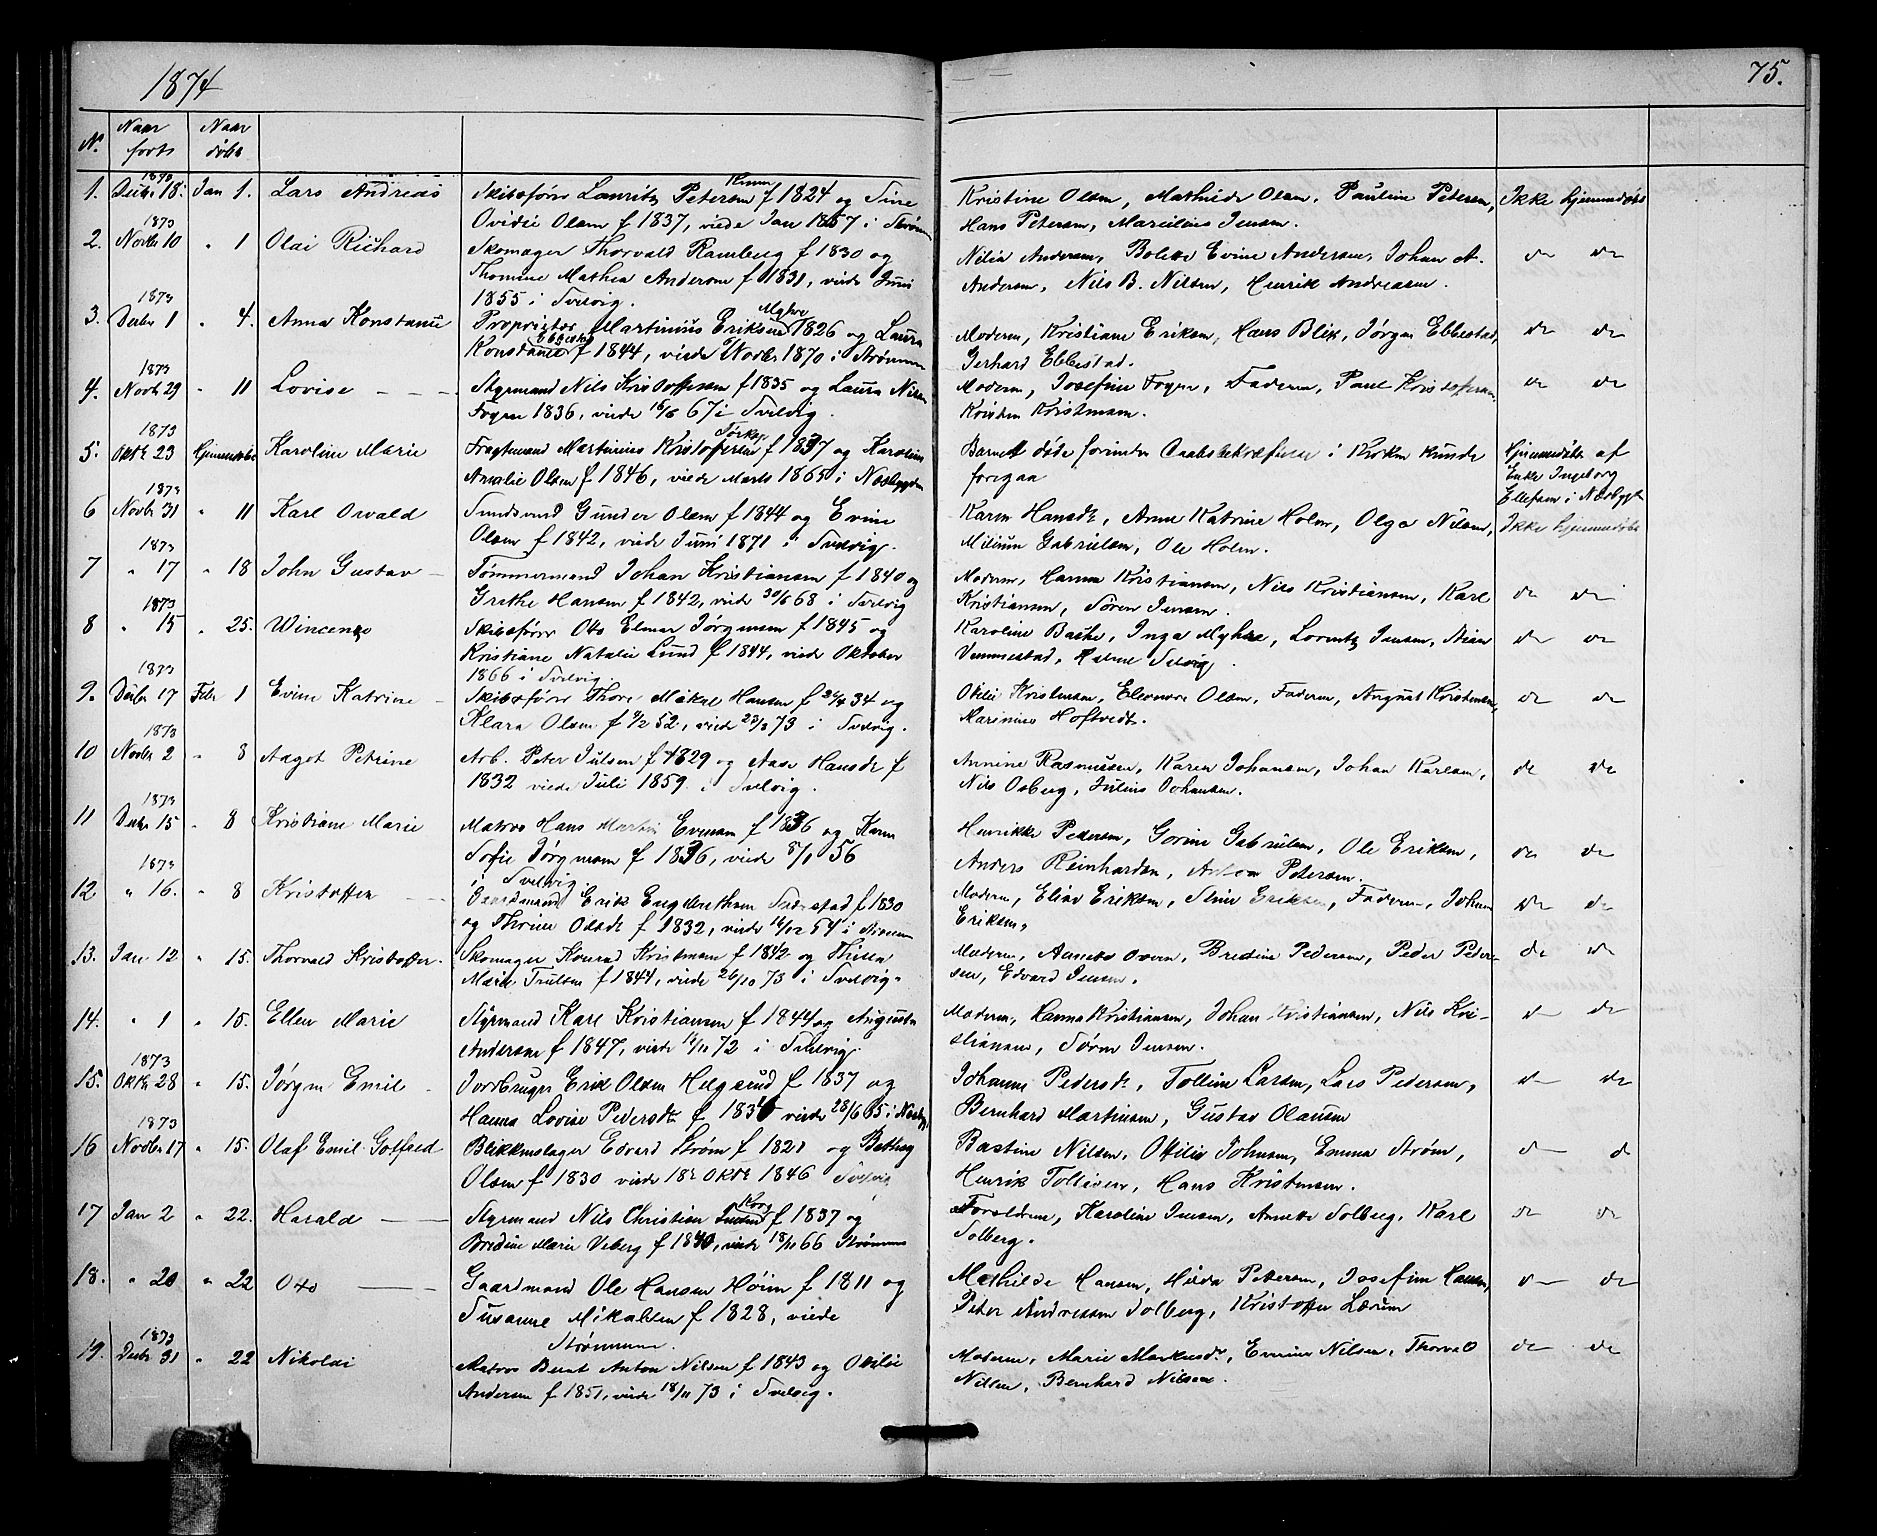 1874
75.
N. Naar født Naar døbt
1. 1873 Decbr 18. Jan 1. Lars Andreas
Skibsfører Lauritz Petersen f 1824 og Sine
Ovidie Olsen f 1837, viede Jan 1857 i
Kristine Olsen, Mathilde Olsen, Pauline Petersen,
Hans Petersen, Marcilius Jensen.
Ikke hjemmedøbt
2. 1873 Novbr 10 " 1 Olai Richard
Skomager Thorvald Ramberg f 1830 og
Thomine Mathea Andersen f 1831, viede Juni
1855 i Svelvig.
Andersen, Bolette Evine Andersen, Johan A.
Andersen, Nils B. Nilsen, Henrik Andreasen.
do do
3. 1873 Decbr 1 " 4. Anna Konstance
Proprietær Martinius Eriksen Myhre 1826 og Laura
Konstance Ebbestad f 1844, viede Novbr 1870 i Strømmen
Moderen, Kristiane Eriksen, Hans Blik, Jørgen Ebbestad,
Gerhard Ebbestad.
do do
4. 1873 Novbr 29 " 11 Lovise
Styrmand Nils Kristoffersen f 1835 og Laura Nilsen
Fogne 1836, viede 16/6 67 i Svelvig.
Moderen, Josefine Fogne, Faderen, Paul Kristoffersen
Kristen Kristensen.
do do
5. 1873 Oktbr 23 Hjemmedøbt Karoline Marie
Fragtemand Martinius Kristofersen f 1837 og Karoline
Amalie Olsen f 1846, viede Marts 1865 i Nesbygden
Barnet døde forinden Daabsbekræftelse i Kirken kunde
foregaa
Hjemmedøbt af
Enke Ingeborg
Ellefsen i Nesbygd
6 1873 Novbr 31 " 11 Karl Osvald
Gunder Olsen f 1844 og Evine
Olsen f 1842, viede Juni 1871 i Svelvig.
Karen Hansdt, Anne Katrine Holm, Olga Nilsen,
Gabrielsen, Ole Holm.
Ikke hjemmedøbt
7 1873 " 17 " 18 John Gustav
Tømmermand Johan Kristiansen f 1840 og
Grethe Hansen f 1842, viede 30/6 68 i Svelvig
Moderen, Hanna Kristiansen, Nils Kristiansen, Karl
Kristiansen, Søren Jensen.
do do
8 1873 " 15 " 25. Wincenze
Skibsfører Otto Elmar Jørgensen f 1845 og
Kristiane Natalie Lund f 1844, viede Oktober
1866 i Svelvig.
Karoline Bache, Inga Myhre, Lorentz Jensen,
Vemmestad,
do do
9. 1873 Decbr 17 Febr 1 Evine Katrine
Skibsfører Thore Mikal Hansen f 34 og
Klara Olsen f 52, viede 73 i Svelvig.
Otilie Kristensen, Eleonore Olsen, Faderen, August Kristensen,
Marinius Hoftvedt.
do do
10 1873 Novbr 2 " 8 Aagot Petrine
Arb. Peter Julsen f 1829 og Aase Hansdt f
1832 viede Juli 1859 i Svelvig.
Annine Rasmussen, Karen Johansen, Johan Karlsen,
Nils Osberg, Julius Johansen.
do do
11 1873 Decbr 15 " 8 Kristiane Marie
Matros Hans Martin Evensen f 1836 og Karen
Sofie Jørgensen f 1836, viede 5/1 56
i Svelvig.
Henrikke Pedersen, Gorine Gabrielsen, Ole Eriksen,
Anders Reinhardsen, Anton Petersen.
do do
12. 1873 " 16. " 8 Kristoffer
Gaardmand Erik Engebrethsen f 1830
og Thorine Olsdt f 1832, viede 54 i
Moderen, Eline Eriksen, Stine Eriksen, Faderen, Johan
Eriksen,
do do
13. Jan 12 " 15. Thorvald Kristoffer
Skomager Konrad Kristensen f 1842 og Thrine
Marie Trulsen f 1844, viede 26/10 73 i Svelvig.
Moderen, Annette Oveen, Bredine Pedersen, Peder Peder-
sen, Edvard Jensen.
do do
14. " 1 " 15. Ellen Marie
Styrmand Karl Kristiansen f 1844 og Augusta
Andersen f 1847, viede 72 i Svelvig.
Moderen, Hanna Kristiansen, Johan Kristiansen, Nils Kri-
stiansen, Søren Jensen.
do do
15. 1873 Oktbr 28 " 15. Jørgen Emil
Jordbruger Erik Olsen Helgerud f 1837 og
Hanna Lovise Pedersdt f 1836 viede 28/6 65 i Nesbyg.
Johanne Pedersdt, Tolline Larsen, Lars Pedersen,
Bernhard Martinsen, Gustav Olausen
do do
16 1873 Novbr 17 " 15. Olaf Emil Gotfred
Blikkenslager Edvard Strøm f 1821 og Bethzy
Olsen f 1830 viede 18 Oktbr 1846 Svelvig
Bastine Nilsen, Otilie Johnsen, Emma Strøm,
Henrik Tollisen, Hans Kristensen.
do d
17 Jan 2 " 22. Harald
Styrmand Nils Christian Korg f 1837 og
Bredine Marie Veberg f 1840, viede 18/11 66 Strømmen
Forældrene, Karoline Jensen, Annette Solberg, Karl
Solberg.
do do
18. " 20 " 22 Otto
Gaardmand Ole Hansen Høien f 1811 og
Susanne Mikalsen f 1828, viede
Strømmen.
Mathilde Hansen, Hilda Pettersen, Josefine Hansen,
Peter Andreasen Solberg, Kristoffer Lærum
do do
19. 1873 Decbr 31 " 22 Nikolai
Matros Bernt Anton Nilsen f 1843 og Otilie
Andersen f 1851, viede 18/11 73 i Svelvig.
Moderen, Marie Markusdt, Evine Nilsen, Thorvald
Nilsen, Bernhard Nilsen.
do do